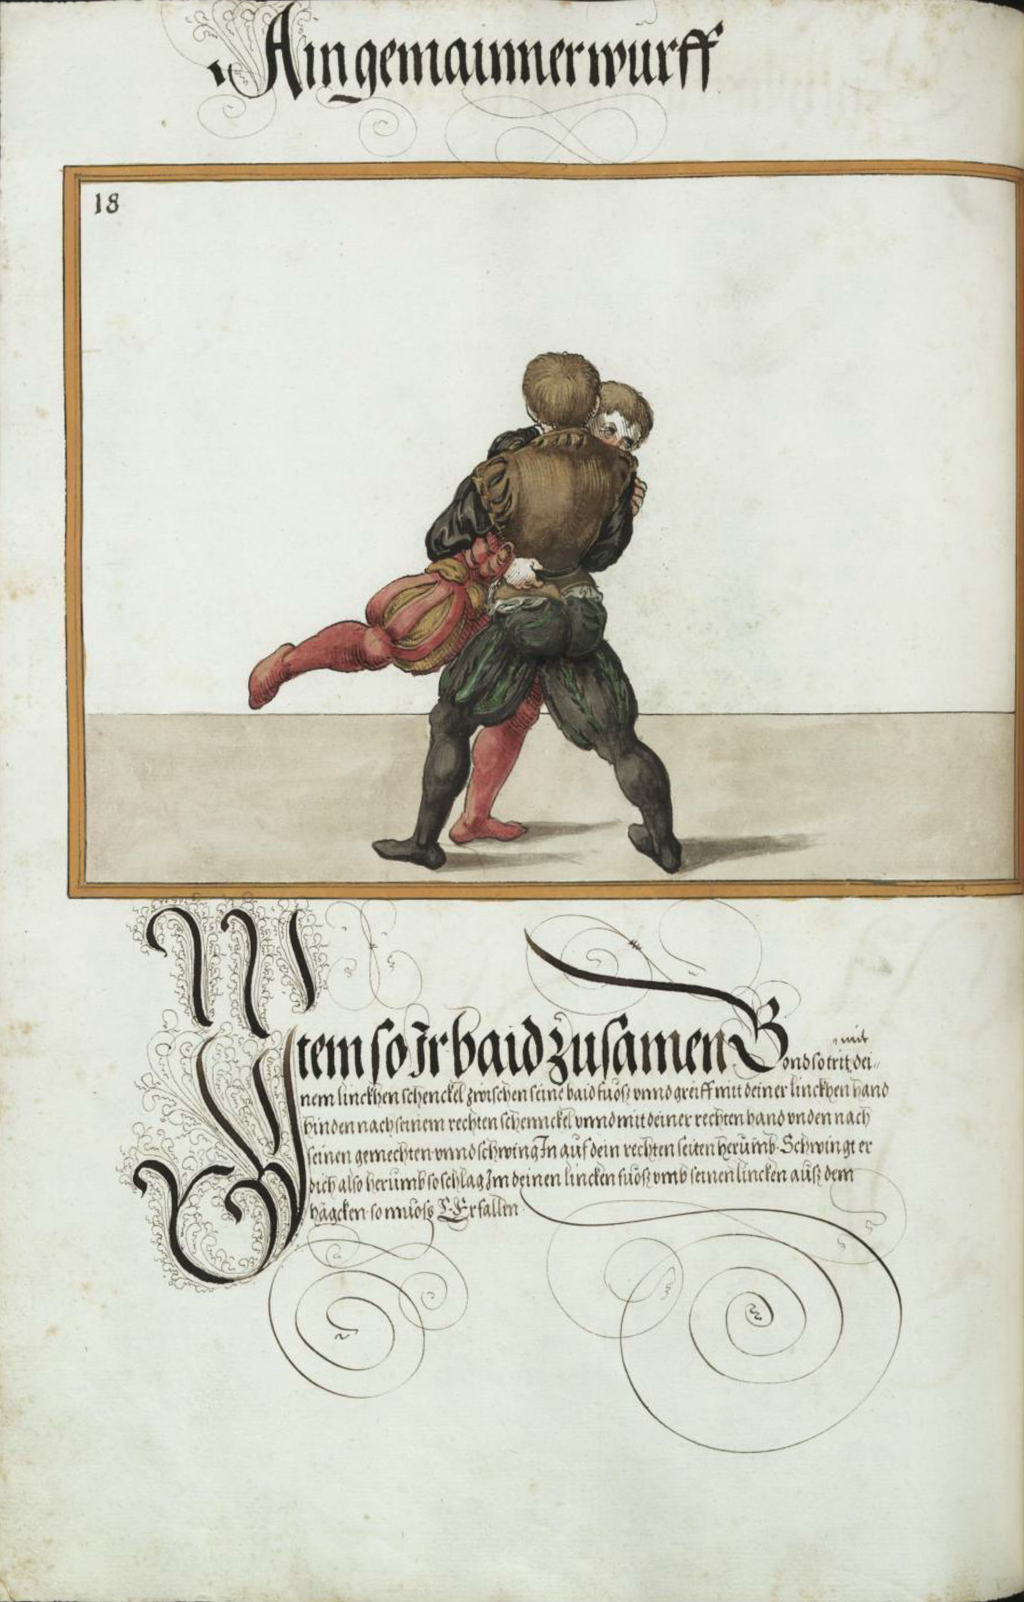 Ain gemainner wurff
18
Item so Ir baid zusamen Bond so trit mit dei-
nem linckhen schenckel zwischen seine baid fuoß vnnd greiff mit deiner linckhen hand
hinden nach seinem rechten schennckel vnnd mit deiner rechten hand vnden nach
seinen gemechten vnnd schwing In auf dein rechten seiten herumb. Schwingt er
dich also herumb so schlag Im deinen lincken fuoß vmb seinen lincken auß dem
häggken so muoß Er fallen